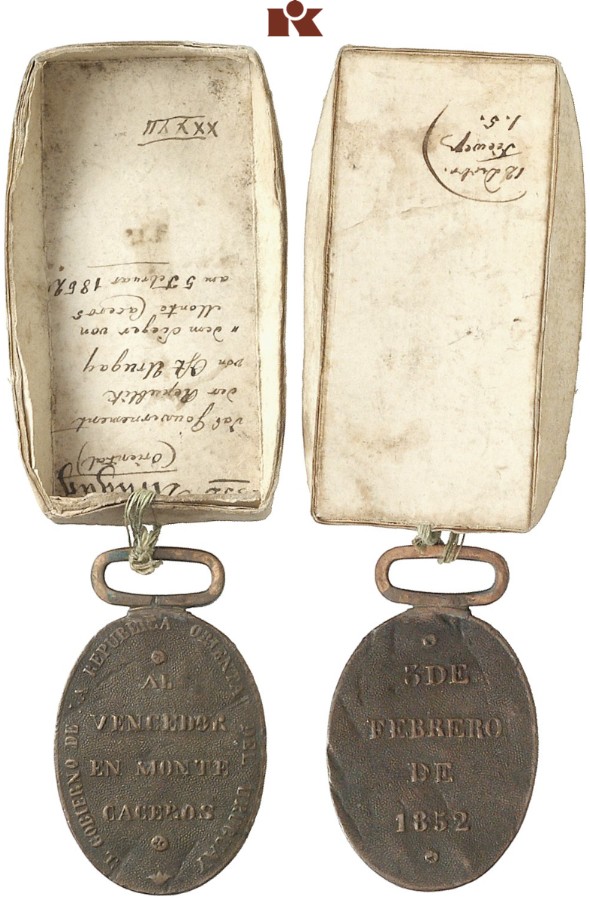 (Oriental)
das Gouvernement
der Republik
von Ost Urugay
„dem Sieger von
Monte Caceros
am 5 Februar 1852.
1. 5.
EL GOBIERNO DE LA REPUBLICA ORIENTAL DEL URUGUAY
AL
VENCEDOR
EN MONTE
CACEROS
3DE
FEBRERO
DE
1852